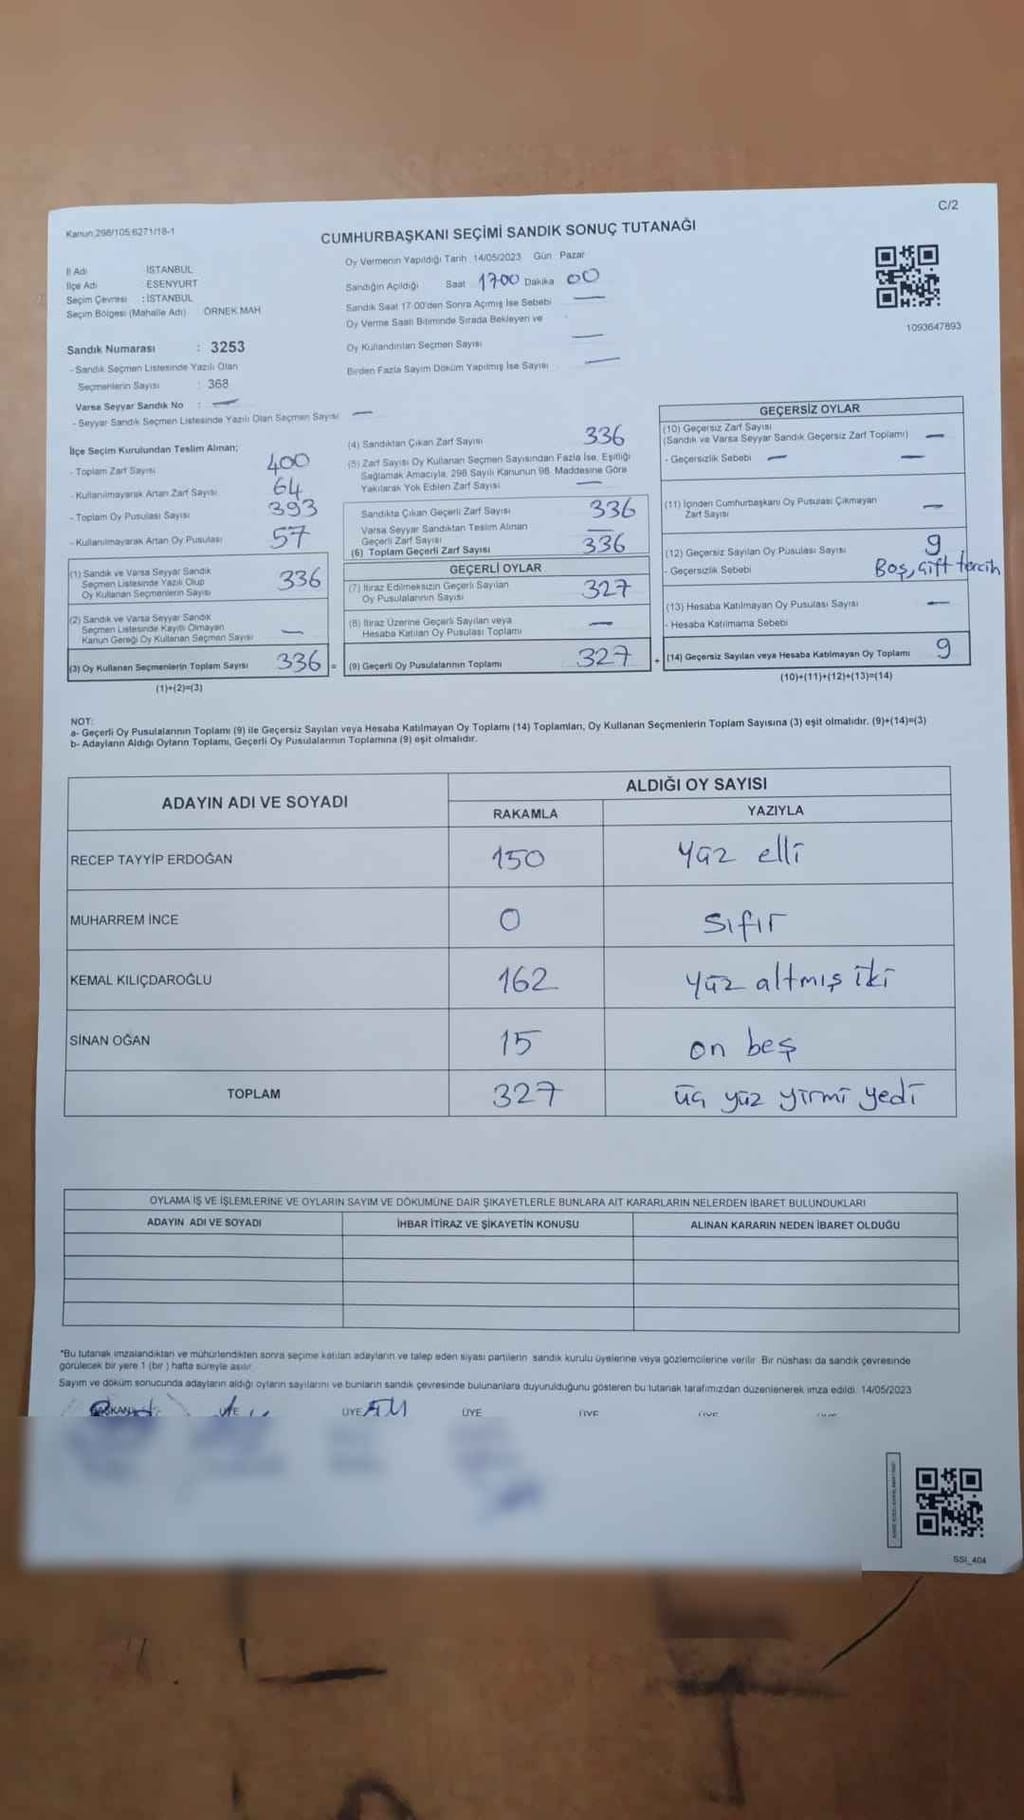 C/2
Kanun:298/105;6271/18-1
CUMHURBAŞKANI SEÇİMİ SANDIK SONUÇ TUTANAĞI
İl Adı : İSTANBUL
İlçe Adı : ESENYURT
Seçim Çevresi : İSTANBUL
Seçim Bölgesi (Mahalle Adı) : ÖRNEK MAH.
Sandık Numarası : 3253
- Sandık Seçmen Listesinde Yazılı Olan
Seçmenlerin Sayısı : 368
Varsa Seyyar Sandık No : —
- Seyyar Sandık Seçmen Listesinde Yazılı Olan Seçmen Sayısı —
Oy Vermenin Yapıldığı Tarih : 14/05/2023 Gün : Pazar
Sandığın Açıldığı Saat 1700 Dakika 00
Sandık Saat 17:00'den Sonra Açımış İse Sebebi —
Oy Verme Saati Bitiminde Sırada Bekleyen ve
Oy Kullandırılan Seçmen Sayısı —
Birden Fazla Sayım Döküm Yapılmış İse Sayısı —
1093647893
İlçe Seçim Kurulundan Teslim Alınan;
- Toplam Zarf Sayısı 400
- Kullanılmayarak Artan Zarf Sayısı 64
- Toplam Oy Pusulası Sayısı 393
- Kullanılmayarak Artan Oy Pusulası 57
(1) Sandık ve Varsa Seyyar Sandık
Seçmen Listesinde Yazılı Olup
Oy Kullanan Seçmenlerin Sayısı 336
(2) Sandık ve Varsa Seyyar Sandık
Seçmen Listesinde Kayıtlı Olmayan
Kanun Gereği Oy Kullanan Seçmen Sayısı —
(3) Oy Kullanan Seçmenlerin Toplam Sayısı 336 =
(1)+(2)=(3)
(4) Sandıktan Çıkan Zarf Sayısı 336
(5) Zarf Sayısı Oy Kullanan Seçmen Sayısından Fazla İse, Eşitliği
Sağlamak Amacıyla, 298 Sayılı Kanunun 98. Maddesine Göre
Yakılarak Yok Edilen Zarf Sayısı —
Sandıkta Çıkan Geçerli Zarf Sayısı 336
Varsa Seyyar Sandıktan Teslim Alınan
Geçerli Zarf Sayısı —
(6) Toplam Geçerli Zarf Sayısı 336
GEÇERLİ OYLAR
(7) İtiraz Edilmeksizin Geçerli Sayılan
Oy Pusulalarının Sayısı 327
(8) İtiraz Üzerine Geçerli Sayılan veya
Hesaba Katılan Oy Pusulası Toplamı —
(9) Geçerli Oy Pusulalarının Toplamı 327 +
GEÇERSİZ OYLAR
(10) Geçersiz Zarf Sayısı
(Sandık ve Varsa Seyyar Sandık Geçersiz Zarf Toplamı) —
- Geçersizlik Sebebi — —
(11) İçinden Cumhurbaşkanı Oy Pusulası Çıkmayan
Zarf Sayısı —
(12) Geçersiz Sayılan Oy Pusulası Sayısı 9
- Geçersizlik Sebebi Boş, çift tercih
(13) Hesaba Katılmayan Oy Pusulası Sayısı —
- Hesaba Katılmama Sebebi
(14) Geçersiz Sayılan veya Hesaba Katılmayan Oy Toplamı 9
(10)+(11)+(12)+(13)=(14)
NOT:
a- Geçerli Oy Pusulalarının Toplamı (9) ile Geçersiz Sayılan veya Hesaba Katılmayan Oy Toplamı (14) Toplamları, Oy Kullanan Seçmenlerin Toplam Sayısına (3) eşit olmalıdır. (9)+(14)=(3)
b- Adayların Aldığı Oyların Toplamı, Geçerli Oy Pusulalarının Toplamına (9) eşit olmalıdır.
ADAYIN ADI VE SOYADI
ALDIĞI OY SAYISI
RAKAMLA YAZIYLA
RECEP TAYYİP ERDOĞAN 150 yüz elli
MUHARREM İNCE 0 sıfır
KEMAL KILIÇDAROĞLU 162 yüz altmış iki
SİNAN OĞAN 15 on beş
TOPLAM 327 üç yüz yirmi yedi
OYLAMA İŞ VE İŞLEMLERİNE VE OYLARIN SAYIM VE DÖKÜMÜNE DAİR ŞİKAYETLERLE BUNLARA AİT KARARLARIN NELERDEN İBARET BULUNDUKLARI
ADAYIN ADI VE SOYADI İHBAR İTİRAZ VE ŞİKAYETİN KONUSU ALINAN KARARIN NEDEN İBARET OLDUĞU
*Bu tutanak imzalandıktan ve mühürlendikten sonra seçime katılan adayların ve talep eden siyasi partilerin sandık kurulu üyelerine veya gözlemcilerine verilir. Bir nüshası da sandık çevresinde
görülecek bir yere 1 (bir ) hafta süreyle asılır.
Sayım ve döküm sonucunda adayların aldığı oyların sayılarını ve bunların sandık çevresinde bulunanlara duyurulduğunu gösteren bu tutanak tarafımızdan düzenlenerek imza edildi. 14/05/2023
BAŞKAN ÜYE ÜYE ÜYE ÜYE ÜYE
SSI_404